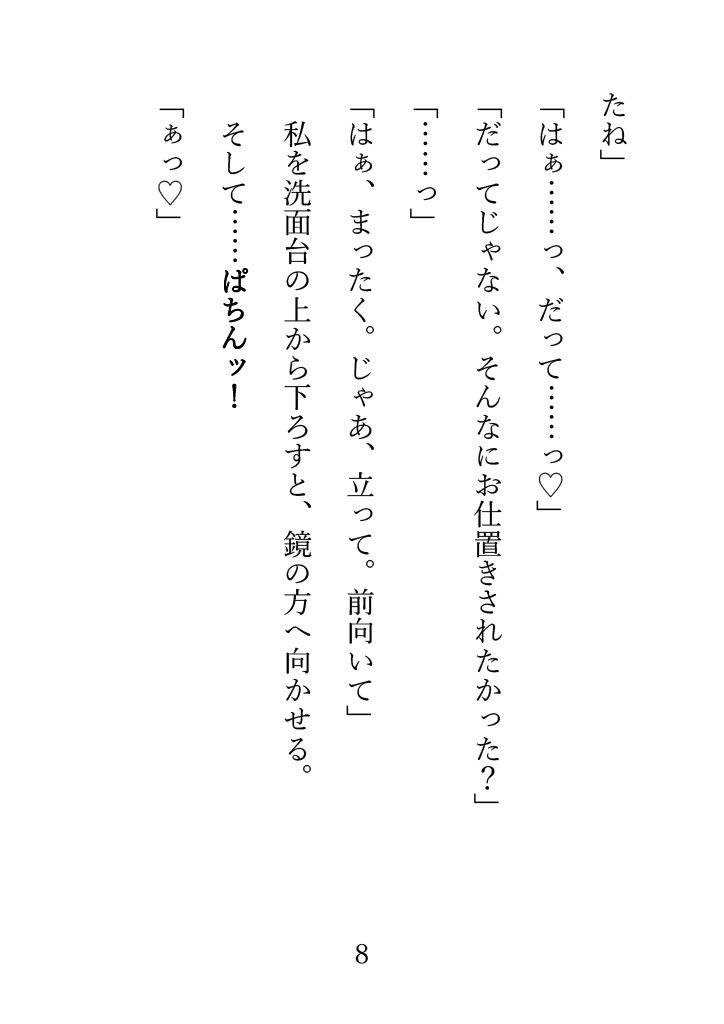 たね」
「はぁ……っ、だって……っ♡」
「だってじゃない。そんなにお仕置きされたかった？」
「……っ」
「はぁ、まったく。じゃあ、立って。前向いて」
　私を洗面台の上から下ろすと、鏡の方へ向かせる。
　そして……ぱちんッ！
「ぁっ♡」
8